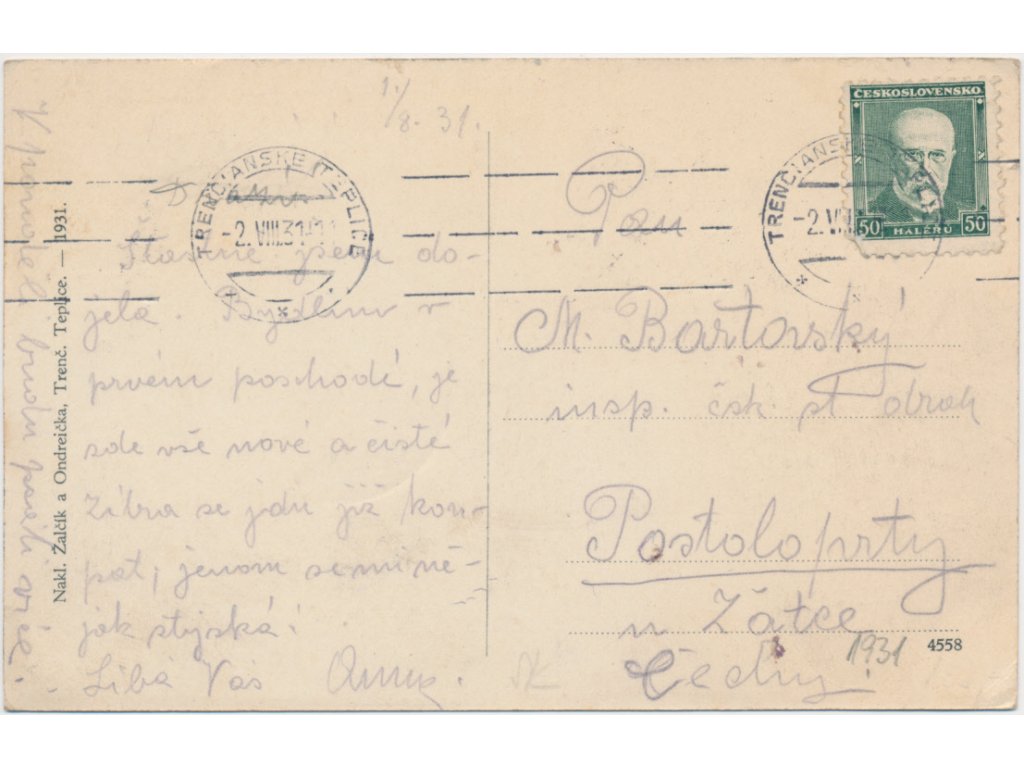 1./8. 31.
Šťastně jsem do-
jela. Bydlím v
prvém poschodí, je
zde vše nové a čisté
Zítra se jdu již kou-
pat, jenom se mi ně-
jak stýská!
Líbá Vás
V pondělí budu psáti více.
Nakl. Žalčík a Ondreička, Trenč. Teplice. — 1931.
TRENČIANSKE TEPLICE
-2.VIII.31
TRENČIANSKE
-2.VI
ČESKOSLOVENSKO
50 HALÉŘŮ 50
Pan
M. Bartovský
insp. čsk. st. drah
Postoloprty
u Žatce
Čechy!
1931
4558